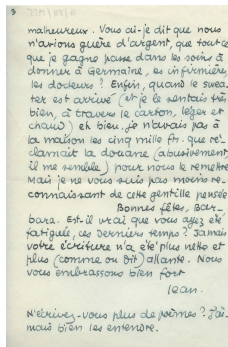 3
malheureux. Vous ai-je dit que nous
n'avions guère d'argent, que tout ce
que je gagne passe dans les soins à
donner à Germaine, les infirmières,
les docteurs ? Enfin, quand le swea-
ter est arrivé (et je le sentais très
bien, à travers le carton, léger et
chaud) eh bien, je n'avais pas à
la maison les cinq mille fr. que ré-
clamait la douane (abusivement,
il me semble) pour nous le remettre
Mais je ne vous suis pas moins re-
connaissant de cette gentille pensée
Bonnes fêtes, Bar-
bara. Est-il vrai que vous ayez été
fatiguée, ces derniers temps ? Jamais
votre écriture n'a été plus nette et
plus (comme on dit) allante. Nous
vous embrassons bien fort
Jean.
N'écrivez-vous plus de poèmes ? J'ai-
mais bien les entendre.